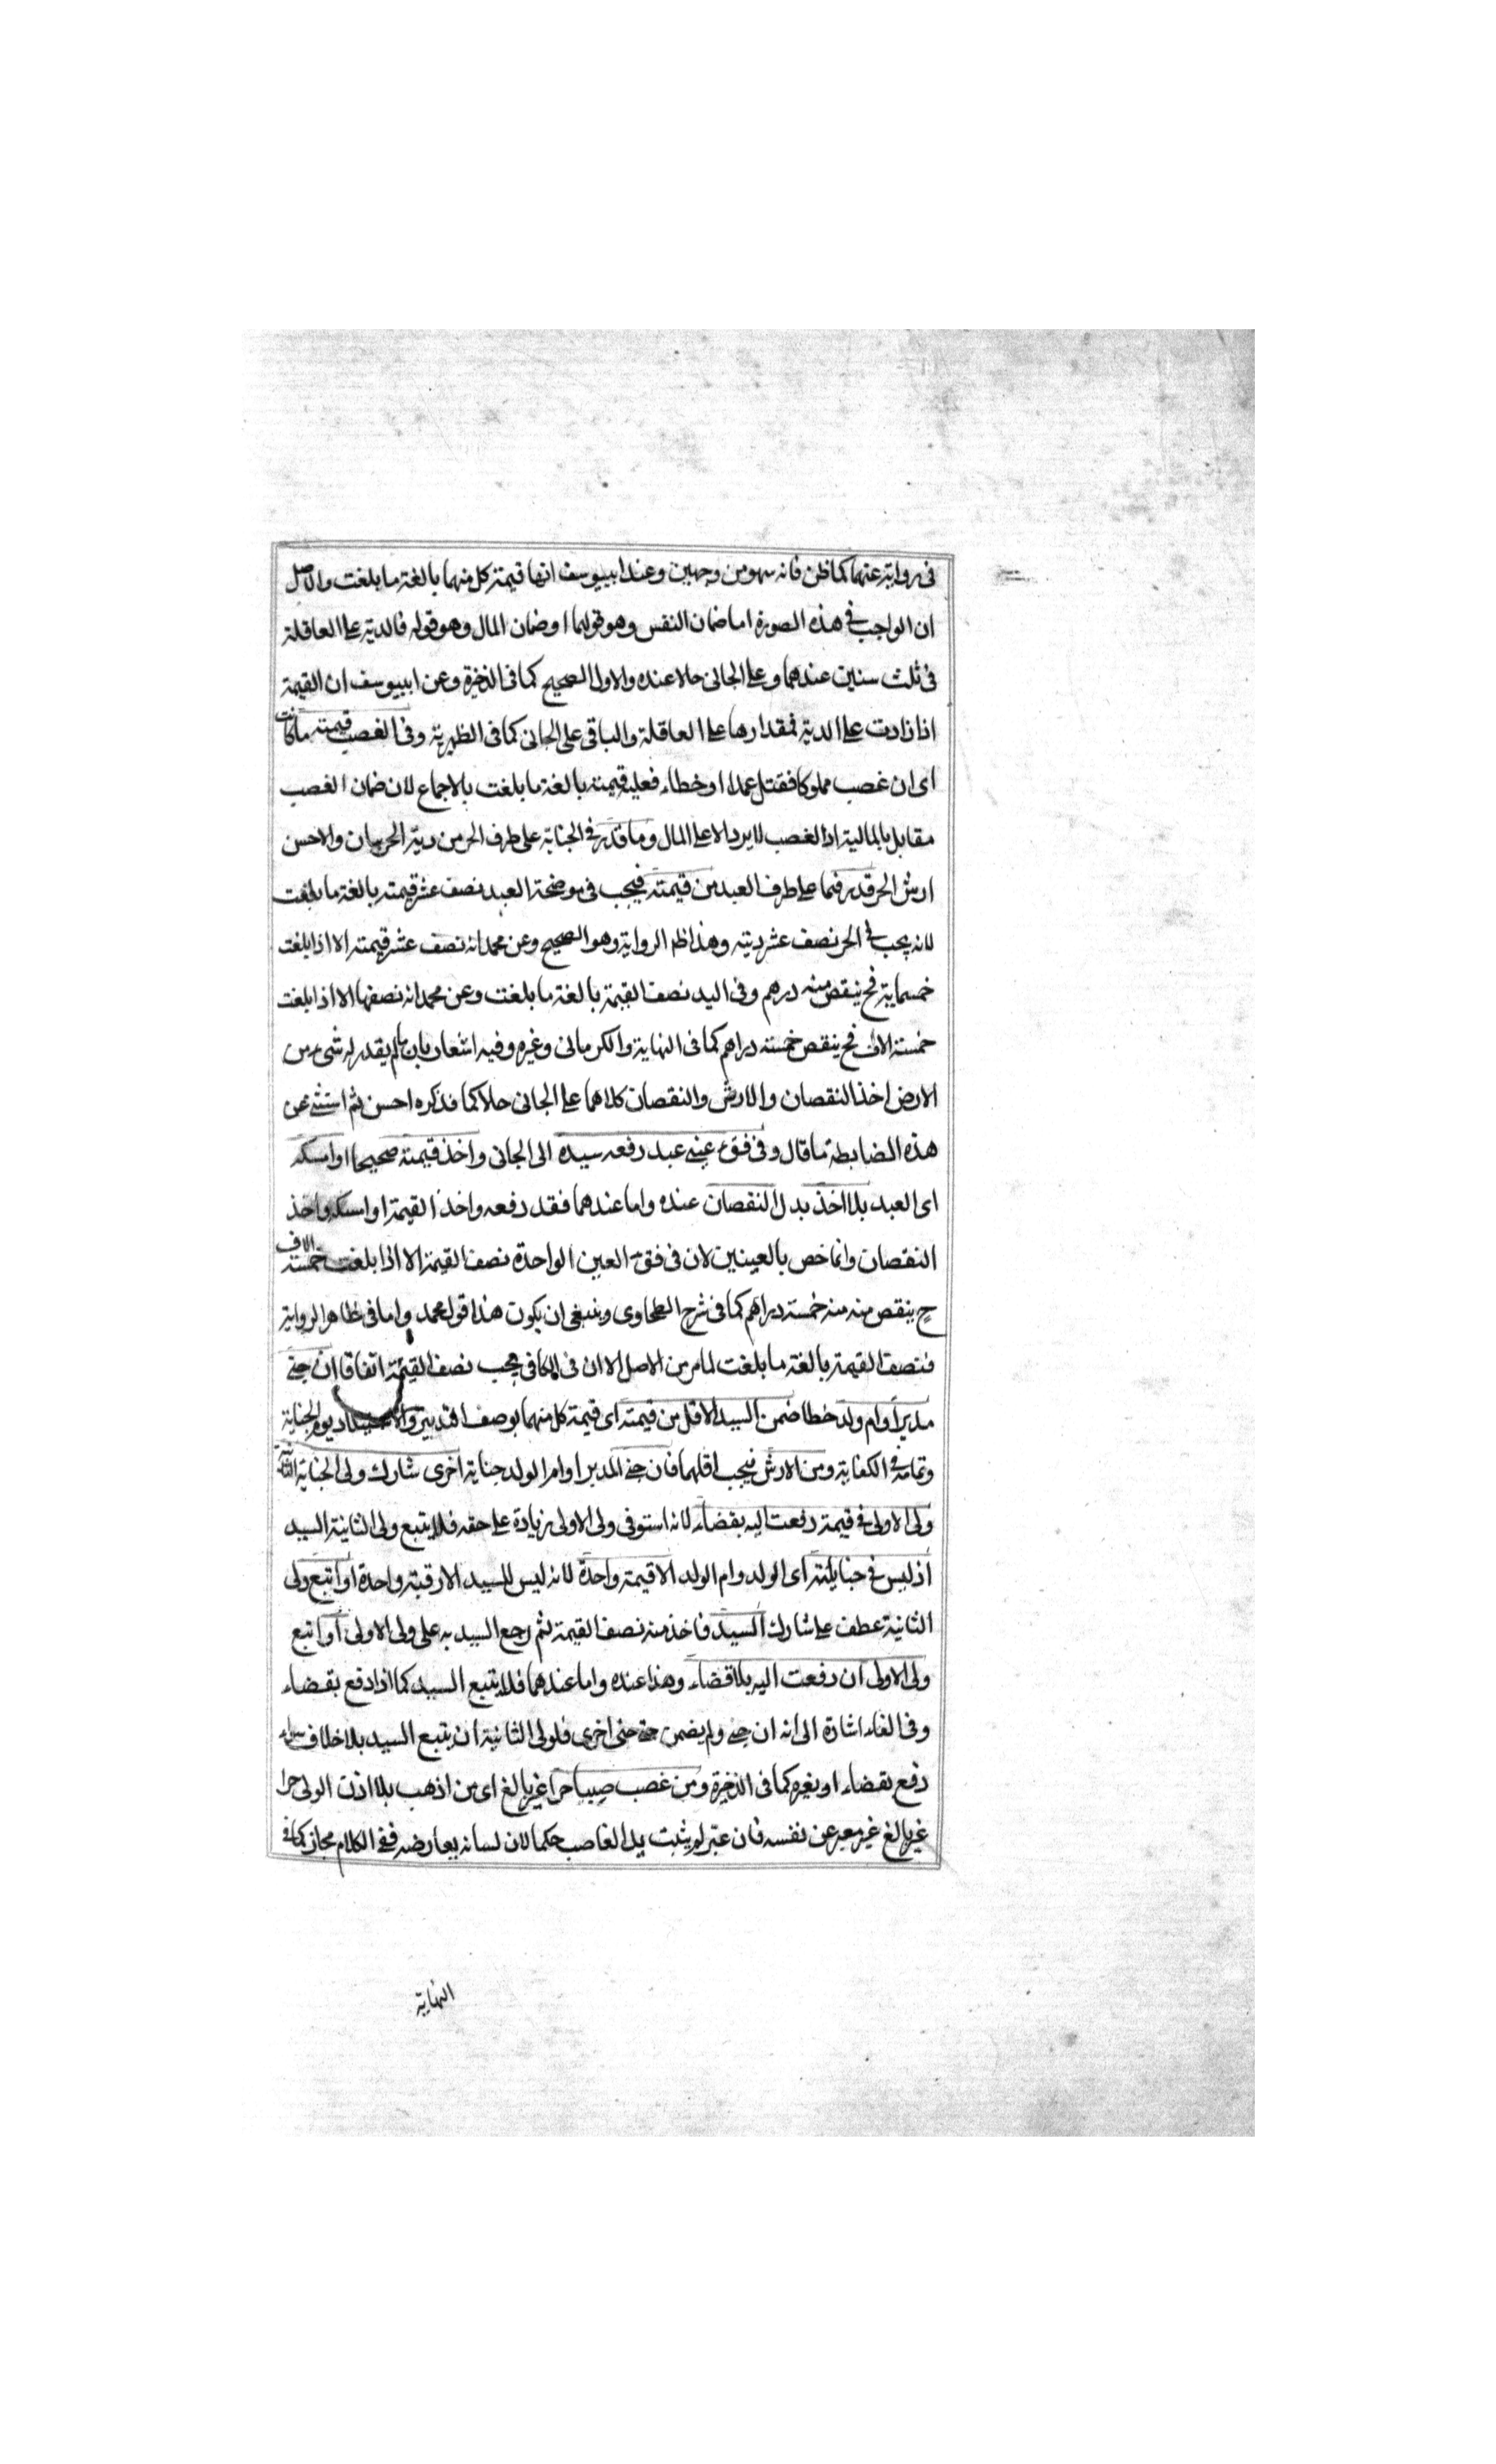 فى رواية عنهما كما ظن فانه سهو من وجهين وعند ابييوسف انها قيمة كل منهما بالغة ما بلغت والاصل
ان الواجب فى هذه الصورة اما ضمان النفس وهو قولهما او ضمان المال وهو قوله فالدية على العاقلة
فى ثلث سنين عندهما وعلى الجانى حالا عنده والاول الصحيح كما فى الذخيرة وعن ابييوسف ان القيمة
اذا زادت على الدية فمقدارها على العاقلة والباقى على الجانى كما فى الظهرية وفى الغصب قيمته ما كانت
اى ان غصب مملوكا فقتل عمدا او خطاء فعليه قيمته بالغة ما بلغت بالاجماع لان ضمان الغصب
مقابل بالمالية اذ الغصب لا يرد الا على المال وما قدر فى الجناية على طرف الحر من دية الحر بيان والاحسن
ارش الحر قدر فما على طرف العبد من قيمته فيجب فى موضحة العبد نصف عشر قيمته بالغة ما بلغت
لانه يجب فى الحر نصف عشر ديته وهذا ظ الرواية وهو الصحيح وعن محمد انه نصف عشر قيمته الا اذا بلغت
خمسماية فح ينقص منه درهم وفى اليد نصف القيمة بالغة ما بلغت وعن محمد انه نصفها الا اذا بلغت
خمسة الاف فح ينقص خمسة دراهم كما فى النهاية والكرمانى وغيره وفيه اشعار بان ما لم يقدر له شىء من
الارض اخذ النقصان والارش والنقصان كلاهما على الجانى حالا كما فذكره احسن ثم استثنى عن
هذه الضابطة ما قال وفى فقء عينى عبد رفعه سيده الى الجانى واخذ قيمته صحيحا او امسكه
اى العبد بلا اخذ بدل النقصان عنده واما عندهما فقد دفعه واخذ القيمة او امسكه واخذ
النقصان وانما خص بالعينين لان فى فقء العين الواحدة نصف القيمة الا اذا بلغت خمسة الاف
ح ينقص منه منه خمسة دراهم كما فى شرح الطحاوى وينبغى ان يكون هذا قول محمد واما فى ظاهر الرواية
فنصف القيمة بالغة ما بلغت لما مر من الاصل الا ان فى الكافى يجب نصف القيمة اتفاقا ان جنى
مدبر او ام ولد خطا ضمن السيد الاقل من قيمته اى قيمة كل منهما بوصف التدبير والاستيلاد يوم الجناية
وتمامه فى الكفاية ومن الارش فيجب اقلهما فان جنى المدبر او ام الولد جناية اخرى شارك ولى الجناية الثانية
ولى الاولى فى قيمة دفعت اليه بقضاء لانه استوفى ولى الاولى زيادة على حقه فلا يتبع ولى الثانية السيد
اذ ليس فى جناياته اى الولد وام الولد الا قيمة واحدة لانه ليس للسيد الا رقبة واحدة او اتبع ولى
الثانية عطف على شارك السيد فاخذ منه نصف القيمة ثم رجع السيد به على ولى الاولى او اتبع
ولى الاولى ان دفعت اليه بلا قضاء وهذا عنده واما عندهما فلا يتبع السيد كما اذا دفع بقضاء
وفى الفاء اشارة الى انه ان جنى ولم يضمن حتى جنى اخرى فلولى الثانية ان يتبع السيد بلا خلاف سواء
دفع بقضاء او بغيره كما فى الذخيرة ومن غصب صبيا حرا غير بالغ اى من اذهب بلا اذن الولى حرا
غير بالغ غير معبر عن نفسه فان عبر لم يثبت يد الغاصب حكما لان لسانه يعارضه ففى الكلام مجاز كما فى
النهاية